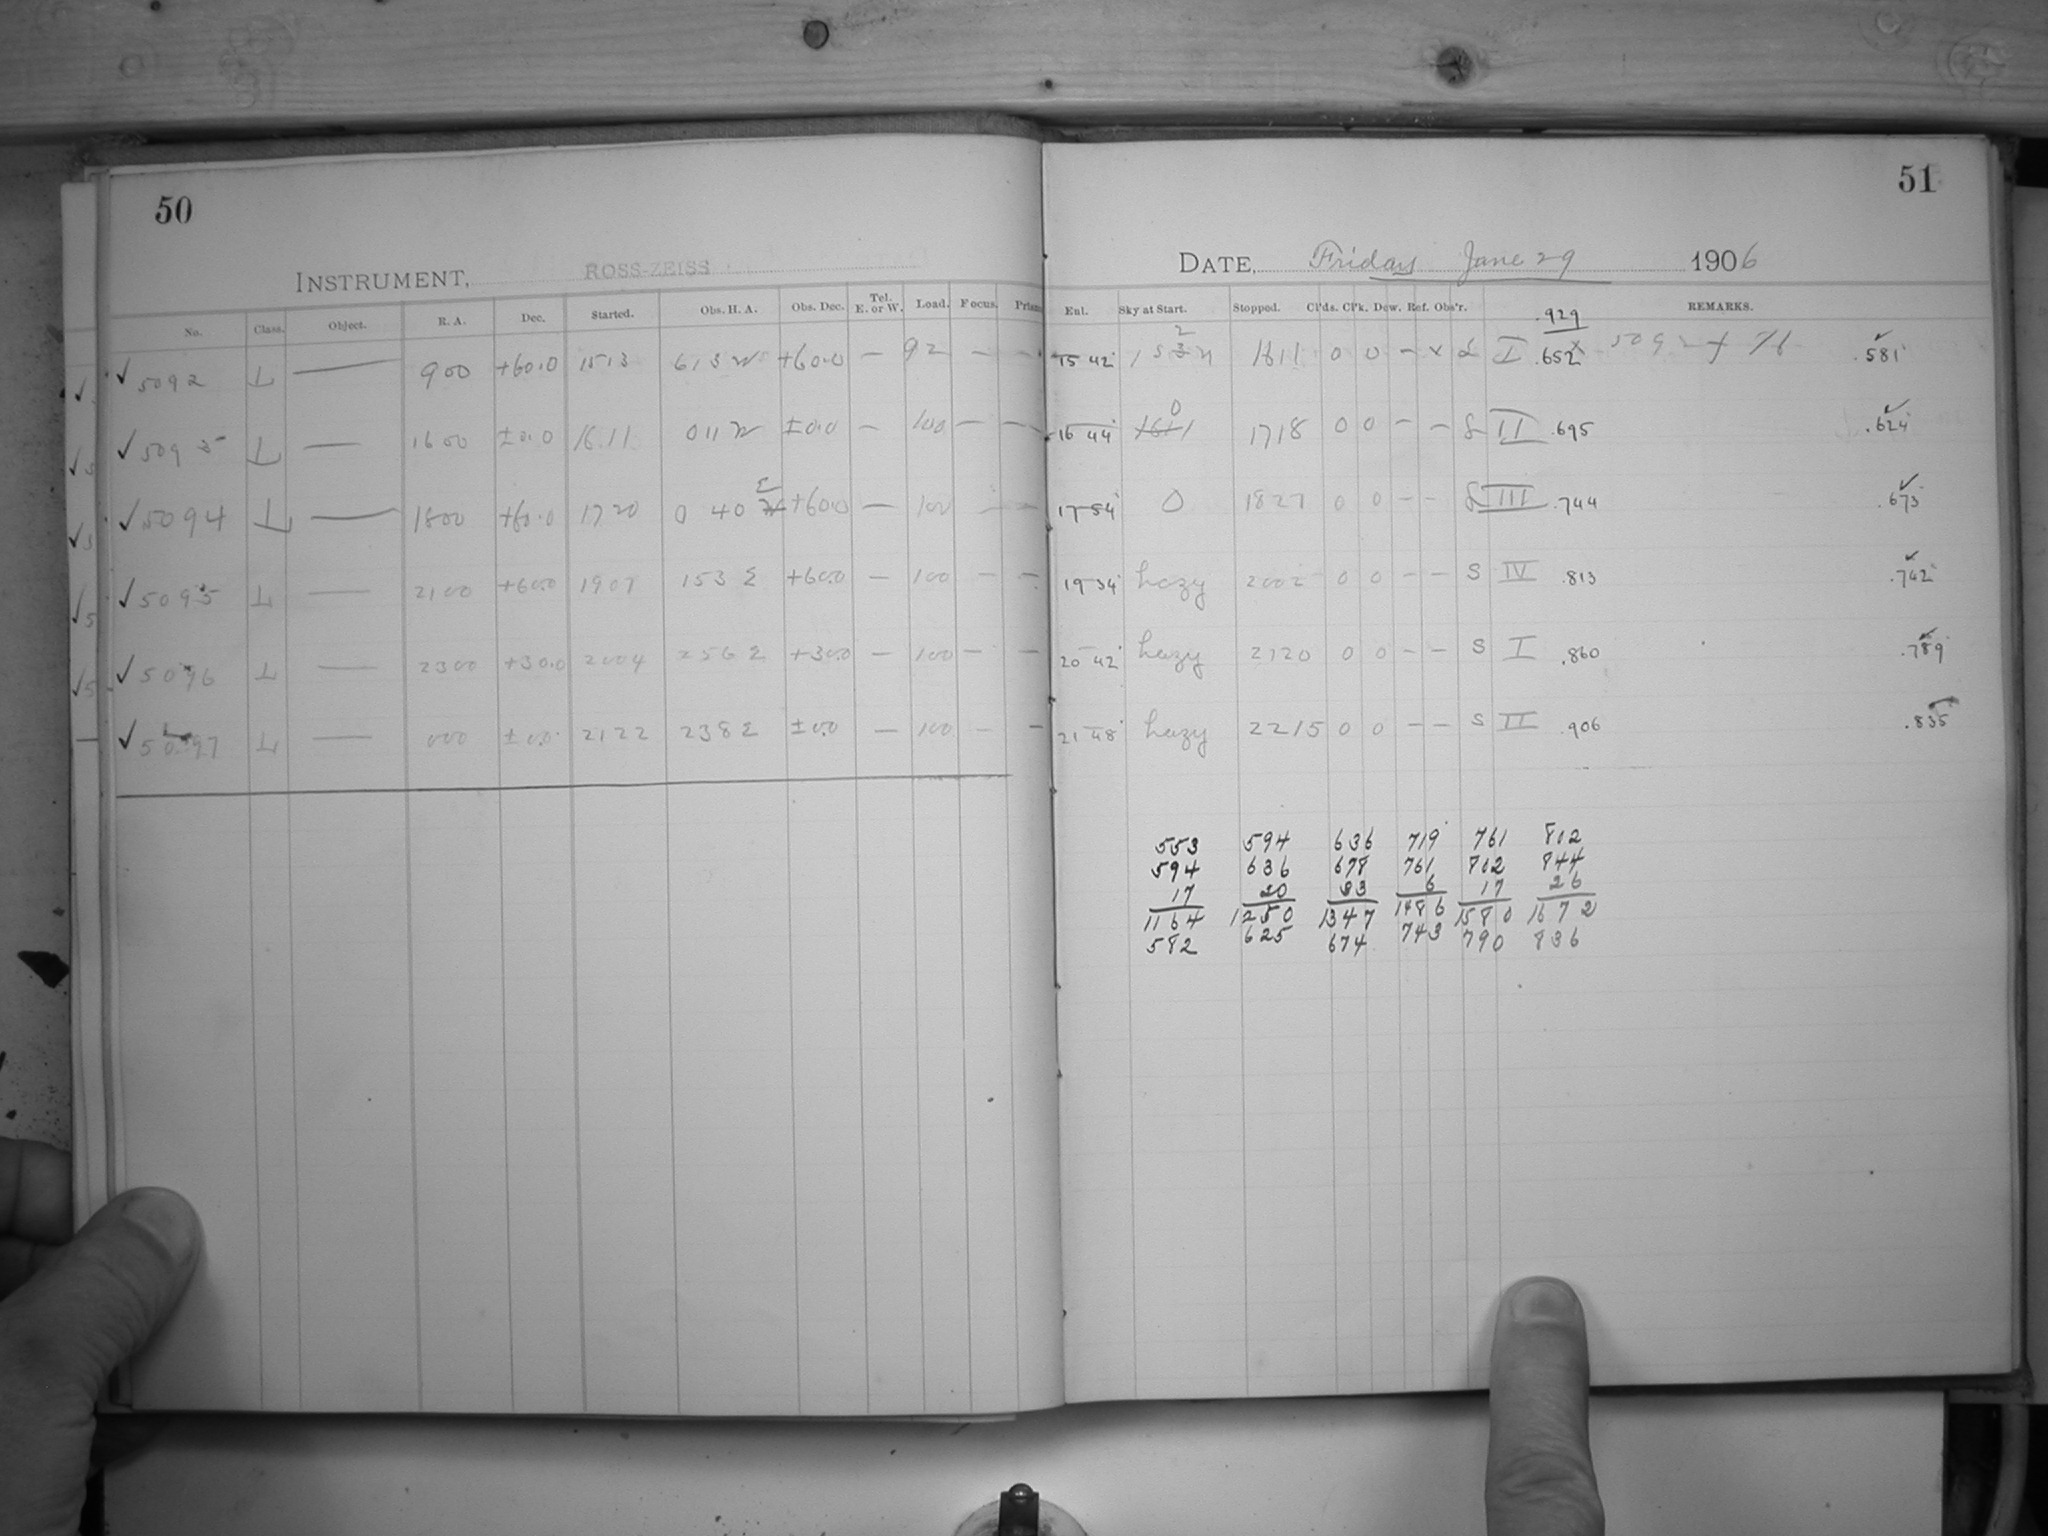 50
INSTRUMENT, ROSS-ZEISS
No. Class. Object. R. A. Dec. Started. Obs. H. A. Obs. Dec. Tel. E. or W. Load. Focus. Prism
✓ 5092 L — 900 +60.0 1513 613 W +60.0 — 92 — —
✓ 5093 L — 1600 ±0.0 1611 011 W ±0.0 — 100 — —
✓ 5094 L — 1800 +60.0 1720 0 40 E +60.0 — 100 — —
✓ 5095 L — 2100 +60.0 1907 153 E +60.0 — 100 — —
✓ 5096 L — 2300 +30.0 2004 256 E +30.0 — 100 — —
✓ 5097 L — 000 ±0.0 2122 238 E ±0.0 — 100 — —
51
DATE, Friday June 29 1906
Exl. Sky at Start. Stopped. Cl'ds. Cl'k. Dew. Ref. Obs'r. .929 REMARKS.
15 42 1611 0 0 — x I .652 .581
16 44 0 1718 0 0 — — II .695 .624
17 54 0 1827 0 0 — — III .744 .673
19 34 hazy 2002 0 0 — — S IV .813 .742
20 42 hazy 2120 0 0 — — S I .860 .789
21 48 hazy 2215 0 0 — — S II .906 .835
553 594 636 719 761 802
594 636 678 761 802 844
17 20 33 6 17 26
1164 1250 1347 1486 1580 1672
582 625 674 743 790 836